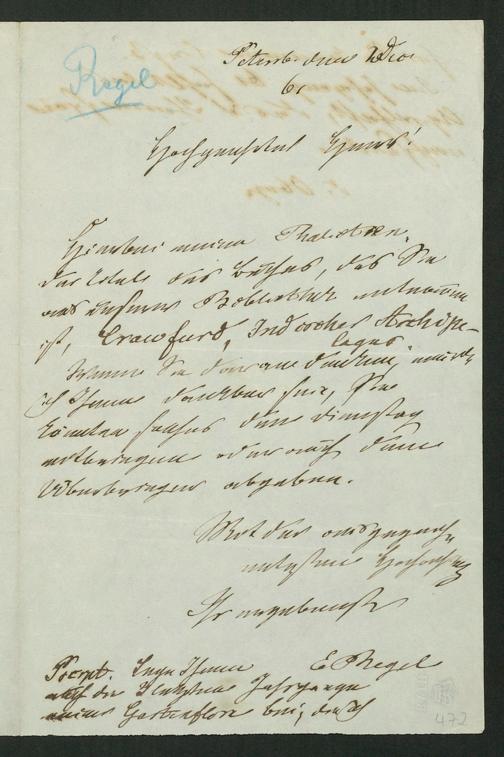 Regel
Petersb. den 2 Dec
61
Hochgeehrter Herr!
Hierbei meine Thalictren.
Der Titel des Buches, das Sie
aus unserer Bibliothek entnommen
ist, Crawfurd, Indischer Archipe-
lagus.
Wenn Sie daran denken, würde
ich Ihnen dankbar sein, Sie
könnten solches den Dienstag
mitbringen oder auch dem
Überbringer abgeben.
Mit der ausgezeich-
netsten Hochachtung
Ihr ergebenster
E Regel
Script. Lege Ihnen
auch die Jahrgänge
meiner Gartenflora bei, die ich
472